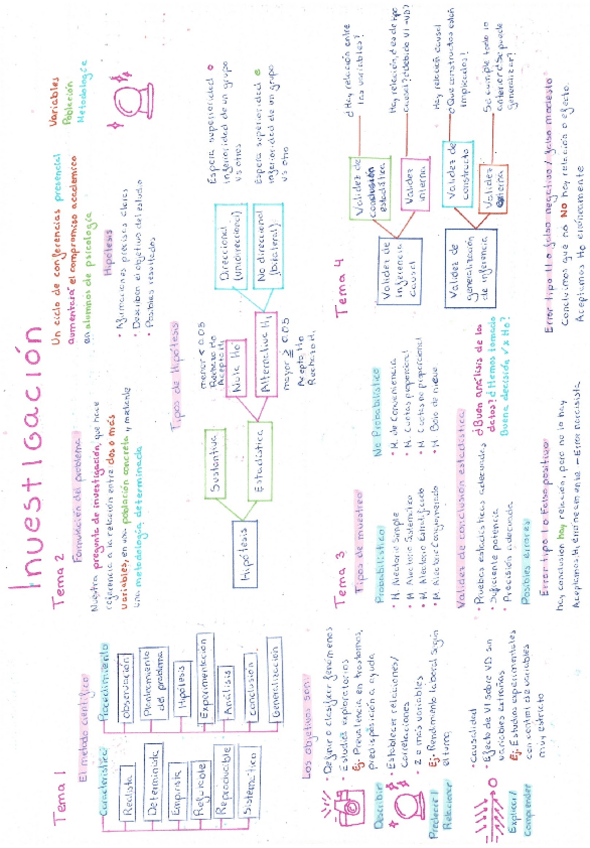 Investigación
Tema 1
El método científico
Características
Realista
Determinista
Empirista
Refutable
Reproducible
Sistemático
Procedimiento
Observación
Planteamiento
del problema
Hipótesis
Experimentación
Análisis
Conclusión
Generalización
Los objetivos son:
Describir
• Definir o clasificar fenómenos
• Estudios exploratorios
Ej: Prevalencia en trastornos,
predisposición a ayuda
Predecir/
Relacionar
• Establecer relaciones/
correlaciones
• 2 o más variables
Ej: Rendimiento laboral según
el turno
Explicar/
Comprender
• Causalidad
• Efecto de VI sobre VD sin
variables extrañas
Ej: Estudios experimentales
con control de variables
muy estricto
Tema 2
Formulación del problema
Nuestra pregunta de investigación, que hace
referencia a la relación entre dos o más
variables, en una población concreta y mediante
una metodología determinada
Un ciclo de conferencias presencial
aumentará el compromiso académico
en alumnos de psicología
Variables
Población
Metodología
Hipótesis
• Afirmaciones precisas, claras
• Describen el objetivo del estudio
• Posibles resultados
Tipos de hipótesis
Hipótesis
Sustantiva
Estadística
menor < 0.05
Rechazo Ho
Acepto H1
Nula Ho
Alternativa H1
mayor ≥ 0.05
Acepto Ho
Rechazo H1
Direccional
(unidireccional)
No direccional
(bilateral)
Espera superioridad o
inferioridad de un grupo
vs otros
Espera superioridad e
inferioridad de un grupo
vs otro
Tema 3
Tipos de muestreo
Probabilístico
• M. Aleatorio Simple
• M. Aleatorio Sistemático
• M. Aleatorio Estratificado
• M. Aleatorio Conglomerado
No Probabilístico
• M. de Conveniencia
• M. Cuotas proporcional
• M. Cuotas no proporcional
• M. Bola de nieve
Validez de conclusión estadística
• Pruebas estadísticas adecuadas
• Suficiente potencia
• Precisión adecuada
¿Buen análisis de los
datos? ¿Hemos tomado
Buena decisión √ x Ho?
Posibles errores
Error tipo I o Falso positivo
Hay conclusión hay relación, pero no la hay
Aceptamos H1 erróneamente - Error narcisista
Tema 4
Validez de
inferencia
causal
Validez de
conclusión
estadística
¿Hay relación entre
las variables?
Validez
interna
Hay relación, ¿es de tipo
causal? ¿debido VI→VD?
Validez de
generalización
de inferencia
Validez de
constructo
Hay relación causal
¿Que constructos están
implicados?
Validez
externa
Si cumple todo lo
anterior ¿se puede
generalizar?
Error tipo II o falso negativo / falso modesto
Concluimos que no NO hay relación o efecto.
Aceptamos Ho erróneamente